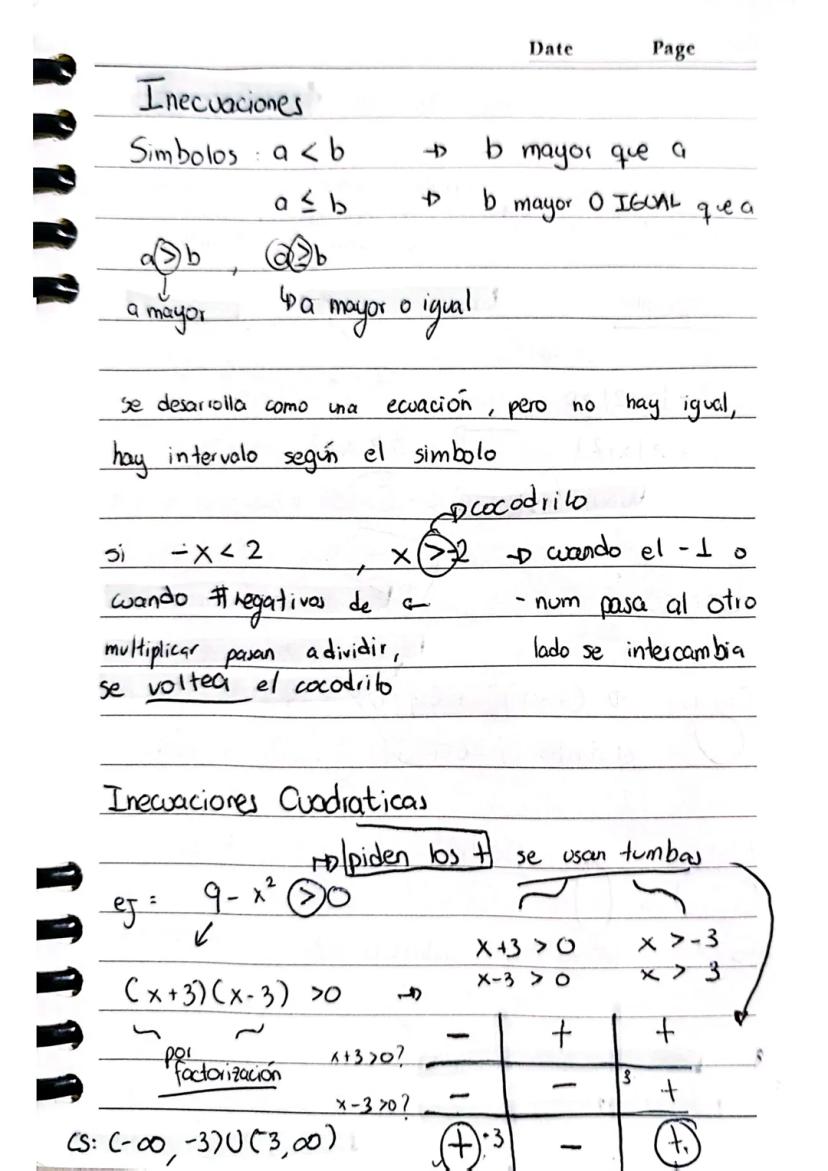 Date Page
Inecuaciones
Simbolos : a < b → b mayor que a
a ≤ b → b mayor O IGUAL que a
a > b , a ≥ b
a mayor ↳ a mayor o igual
se desarrolla como una ecuación, pero no hay igual,
hay intervalo según el simbolo
→ cocodrilo
si -x < 2 , x > -2 → cuando el -1 o
cuando # negativos de ← - num pasa al otro
multiplicar pasan a dividir, lado se intercambia
se voltea el cocodrilo
Inecuaciones Cuadraticas
→ piden los + se usan tumbas
ej = 9 - x² > 0
x+3 > 0 x > -3
x-3 > 0 x > 3
(x+3)(x-3) > 0 →
- + +
por factorización
x+3>0?
- - 3 +
x-3>0?
CS: (-∞, -3)∪(3, ∞) + -3 - +